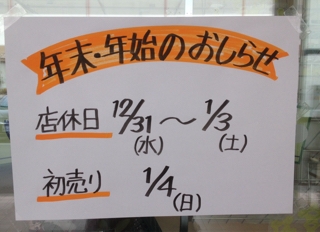 年末・年始のおしらせ
店休日 12/31(水)～1/3(土)
初売り 1/4(日)